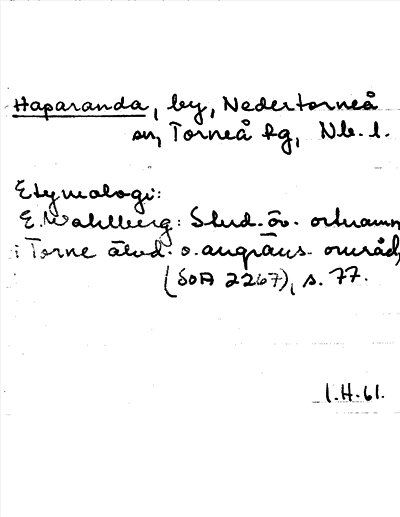 Haparanda, by, Nedertorneå
sn, Torneå tg, Nb. l.
Etymologi:
E. Wahlberg: Stud. öv. ortnamn
i Torne älvd. o. angräns. områd.
(SOA 2267), s. 77.
I.H.61.